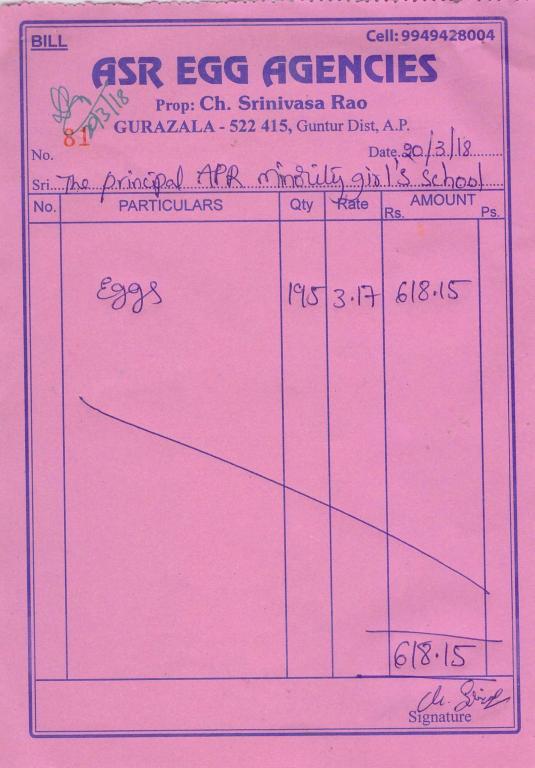 BILL Cell: 9949428004
ASR EGG AGENCIES
Prop: Ch. Srinivasa Rao
20/3/18
GURAZALA - 522 415, Guntur Dist, A.P.
No. 81 Date. 20/3/18
Sri. The principal APR minority girl's School
No. PARTICULARS Qty Rate AMOUNT
Rs. Ps.
Eggs 195 3.17 618.15
618.15
Signature